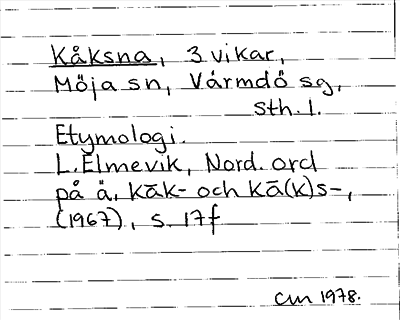 Kåksna, 3 vikar,
Möja sn, Värmdö sg,
Sth. l.
Etymologi.
L. Elmevik, Nord. ord
på ä. kāk- och kā(k)s-,
(1967), s. 17f
CM 1978.